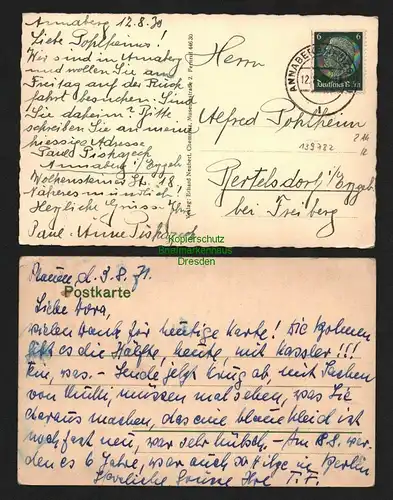 Annaberg 12.8.39
Liebe Pohlheims!
Wir sind in Annaberg
und wollen Sie am
Freitag auf der Rück
fahrt besuchen. Sind
Sie daheim? Bitte
schreiben Sie an meine
hiesige Adresse
Annaberg i/Erzgeb
Wolkensteiner St. 18,
Näheres mündlich
Herzliche Grüsse Ihre
Paul-Anne
Verlag: Erhard Neubert, Chemnitz
6 6
Deutsches Reich
ANNABERG
12.
Herrn
Alfred Pohlheim
139782
Bertelsdorf i/Erzgeb
bei Freiberg
Kopierschutz
Briefmarkenhaus
Dresden
Plauen d. 3.8.71.
Postkarte
Liebe Dora,
vielen Dank für heutige Karte! Die Bohnen
es die Hälfte, heute, mit Kassler!!!
Fein, was. - Sende jetzt Krug ab, mit Sachen
von müssen mal sehen, was Sie
daraus machen, das eine blaue Kleid ist
noch fast neu, war sehr hübsch. - Am 18.8. wer-
den es 6 Jahre, war auch so in Berlin
Herzliche Grüsse Ihre